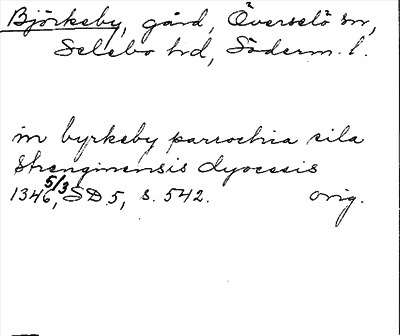 Björkeby, gård, Överselö sn,
Selebo hd, Söderm. l.
in byrkeby parrochia sila
strenginensis dyocesis
1346 5/3, SD 5, s. 542. orig.